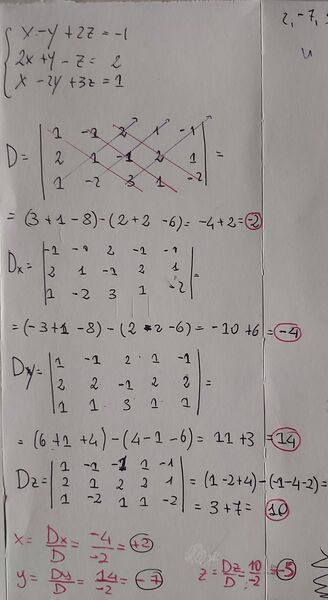 x-y+2z=-1
2x+y-z=2
x-2y+3z=1
2,-7,
D= | 1 -1 2 1 -1 |
| 2 1 -1 2 1 | =
| 1 -2 3 1 -2 |
= (3+1-8)-(2+2-6)= -4+2=-2
Dx= | -1 -1 2 -1 -1 |
| 2 1 -1 2 1 | =
| 1 -2 3 1 -2 |
=(-3+1-8)-(2+2-6)= -10+6=-4
Dy= | 1 -1 2 1 -1 |
| 2 2 -1 2 2 | =
| 1 1 3 1 1 |
= (6+1+4)-(4-1-6)= 11+3=14
Dz= | 1 -1 -1 1 -1 |
| 2 1 2 2 1 | = (1-2+4)-(-1-4-2)=
| 1 -2 1 1 -2 | = 3+7= 10
x= Dx/D = -4/-2 = +2
y= Dy/D = 14/-2 = -7
z= Dz/D = 10/-2 = -5